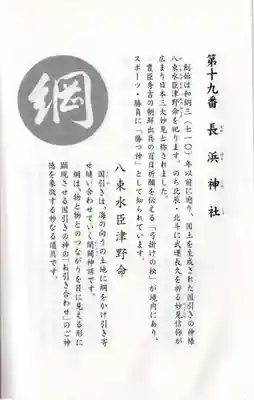 第十九番 長浜神社
創始は和銅三(七一〇)年以前に遡り、国土を生成された国引きの神様
八束水臣津野命を祀ります。のち北辰・北斗に武運長久を祈る妙見信仰が
広まり日本三大妙見と称されました。
豊臣秀吉の朝鮮出兵の百日祈願を伝える「弓掛けの松」が境内にあり、
スポーツ・勝負に「勝つ神」として知られています。
八束水臣津野命
国引きは、海の向うの土地に綱をかけ引き寄
せ縫い合わせていく開闢神話です。
綱は、物と物とのつながりを目に見える形に
顕現させる国引きの神の「お引き合わせ」のご神
徳を象徴する妙なる道具です。
綱